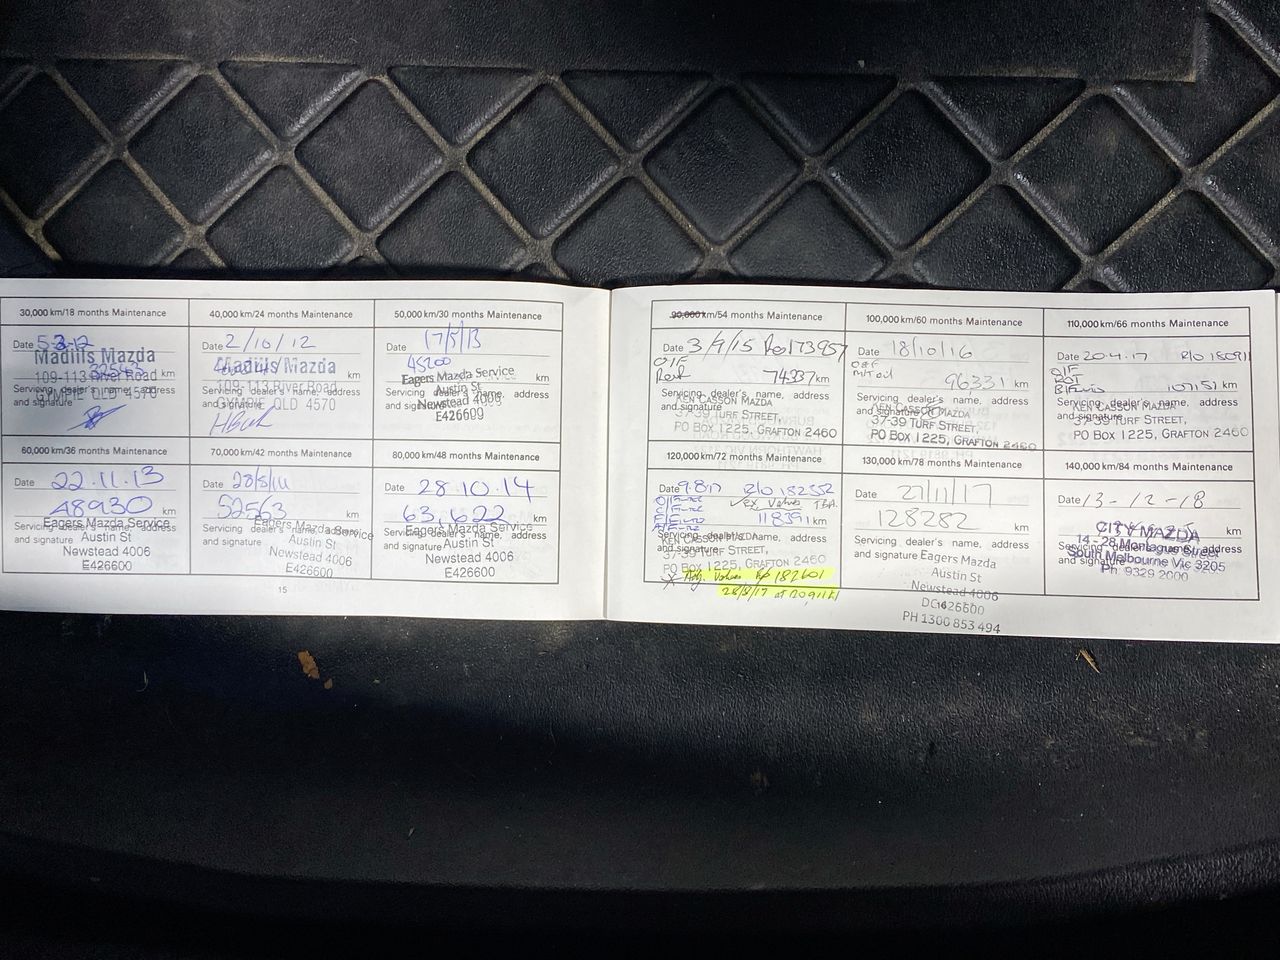 30,000 km/18 months Maintenance
Date 5-3-12
Madills Mazda
32563 km
109-113 River Road
Servicing dealer's name, address
and signature
GYMPIE QLD 4570
40,000 km/24 months Maintenance
Date 2/10/12
Madills Mazda
km
109-113 River Road
Servicing dealer's name, address
and signature
GYMPIE QLD 4570
50,000 km/30 months Maintenance
Date 17/5/13
45200 km
Eagers Mazda Service
Austin St
Servicing dealer's name, address
and signature
Newstead 4006
E426609
60,000 km/36 months Maintenance
Date 22.11.13
48930 km
Servicing dealer's name, address
and signature
Eagers Mazda Service
Austin St
Newstead 4006
E426600
70,000 km/42 months Maintenance
Date
52563 km
Servicing dealer's name, address
and signature
Eagers Mazda Service
Austin St
Newstead 4006
E426600
80,000 km/48 months Maintenance
Date 28.10.14
63,622 km
Servicing dealer's name, address
and signature
Eagers Mazda Service
Austin St
Newstead 4006
E426600
15
90,000km/54 months Maintenance
Date 3/9/15 Ro173957
O/F
Rot
74337 km
Servicing dealer's name, address
and signature
KEN CASSON MAZDA
37-39 TURF STREET,
PO BOX 1225, GRAFTON 2460
100,000 km/60 months Maintenance
Date 18/10/16
O&F
96331 km
Servicing dealer's name, address
and signature
KEN CASSON MAZDA
37-39 TURF STREET,
PO BOX 1225, GRAFTON 2460
110,000 km/66 months Maintenance
Date 20.4.17 R/O
O/F
ROT
107151 km
Servicing dealer's name, address
and signature
KEN CASSON MAZDA
37-39 TURF STREET,
PO BOX 1225, GRAFTON 2460
120,000 km/72 months Maintenance
Date 9.8.17 R/O 182552
118391 km
Servicing dealer's name, address
and signature
KEN CASSON MAZDA
37-39 TURF STREET,
PO BOX 1225, GRAFTON 2460
Adj Valves 182601
28/8/17 at
130,000 km/78 months Maintenance
Date 27/11/17
128282 km
Servicing dealer's name, address
and signature
Eagers Mazda
Austin St
Newstead 4006
DC426600
16
PH 1300 853 494
140,000 km/84 months Maintenance
Date 13-12-18
km
CITY MAZDA
14 - 28 Montague Street
Servicing dealer's name, address
and signature
South Melbourne Vic 3205
Ph: 9329 2000